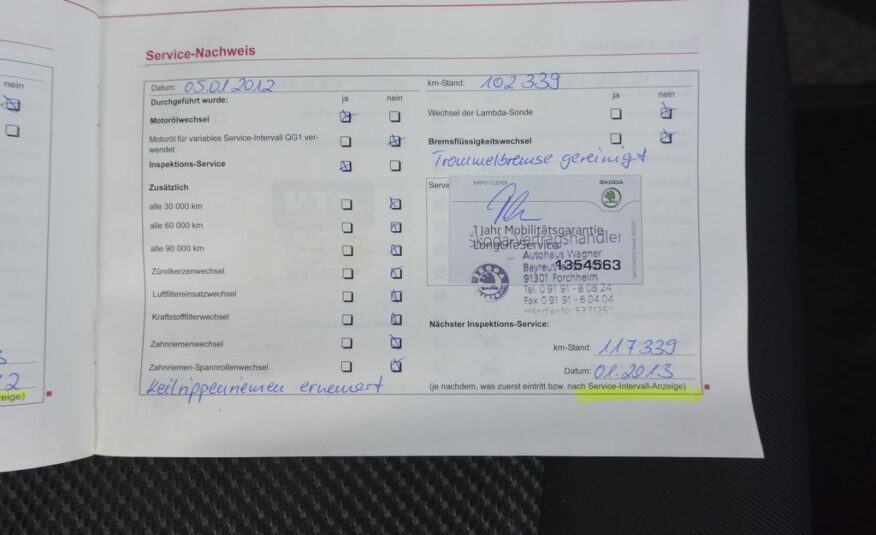 nein
Service-Nachweis
Datum: 05.01.2012
km-Stand: 102 339
Durchgeführt wurde: ja nein
ja nein
Motorölwechsel
Wechsel der Lambda-Sonde
Motoröl für variables Service-Intervall QG1 ver-
wendet
Bremsflüssigkeitswechsel
Trommelbremse gereinigt
Inspektions-Service
Zusätzlich
alle 30 000 km
alle 60 000 km
alle 90 000 km
Zündkerzenwechsel
Luftfiltereinsatzwechsel
Kraftstofffilterwechsel
Zahnriemenwechsel
Zahnriemen-Spannrollenwechsel
Keilrippenriemen erneuert
SIMPLY CLEVER
SKODA
1 Jahr Mobilitätsgarantie
LongLifeService
Skoda-Vertragshändler
Autohaus Wagner
1354563
91301 Forchheim
Tel. 0 91 91 - 8 08 24
Fax 0 91 91 - 6 04 04
Nächster Inspektions-Service:
km-Stand: 117 339
Datum: 01.2013
(je nachdem, was zuerst eintritt bzw. nach Service-Intervall-Anzeige)